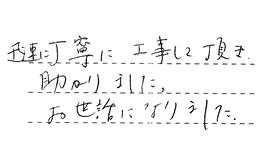 迅速に丁寧に工事して頂き
助かりました。
お世話になりました。